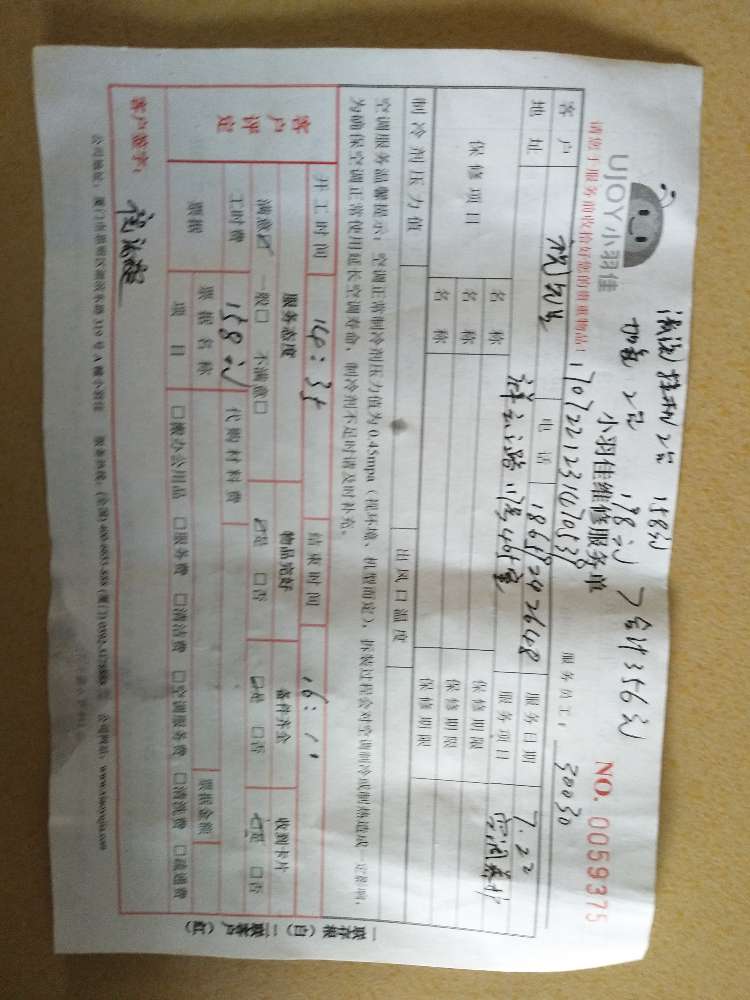 清洗挂机2台 158元
加氟2台 198元 合计356元
UJOY小羽佳
小羽佳维修服务单
NO. 0059375
请您于服务前收捡好您的贵重物品！
170722123167053
服务员工：
30030
客户
电话
服务日期 7.22
地址
服务项目
保修项目
名称
保修期限
名称
保修期限
名称
保修期限
制冷剂压力值
出风口温度
空调服务温馨提示：空调正常制冷剂压力值为0.45mpa（视环境、机型而定），拆装过程会对空调制冷或制热造成一定影响，
为确保空调正常使用延长空调寿命，制冷剂不足时请及时补充。
客户评定
开工时间 14:35
结束时间 16:11
服务态度
物品完好
备件齐全
收到卡片
满意☑ 一般□ 不满意□
☑是 □否
☑是 □否
☑是 □否
工时费 158元
代购材料费
票据
票据名称
票据金额
项目
□办公用品 □服务费 □清洁费 □空调服务费 □清洗费 □疏通费
客户签字：
一联存根（白）二联客户（红）